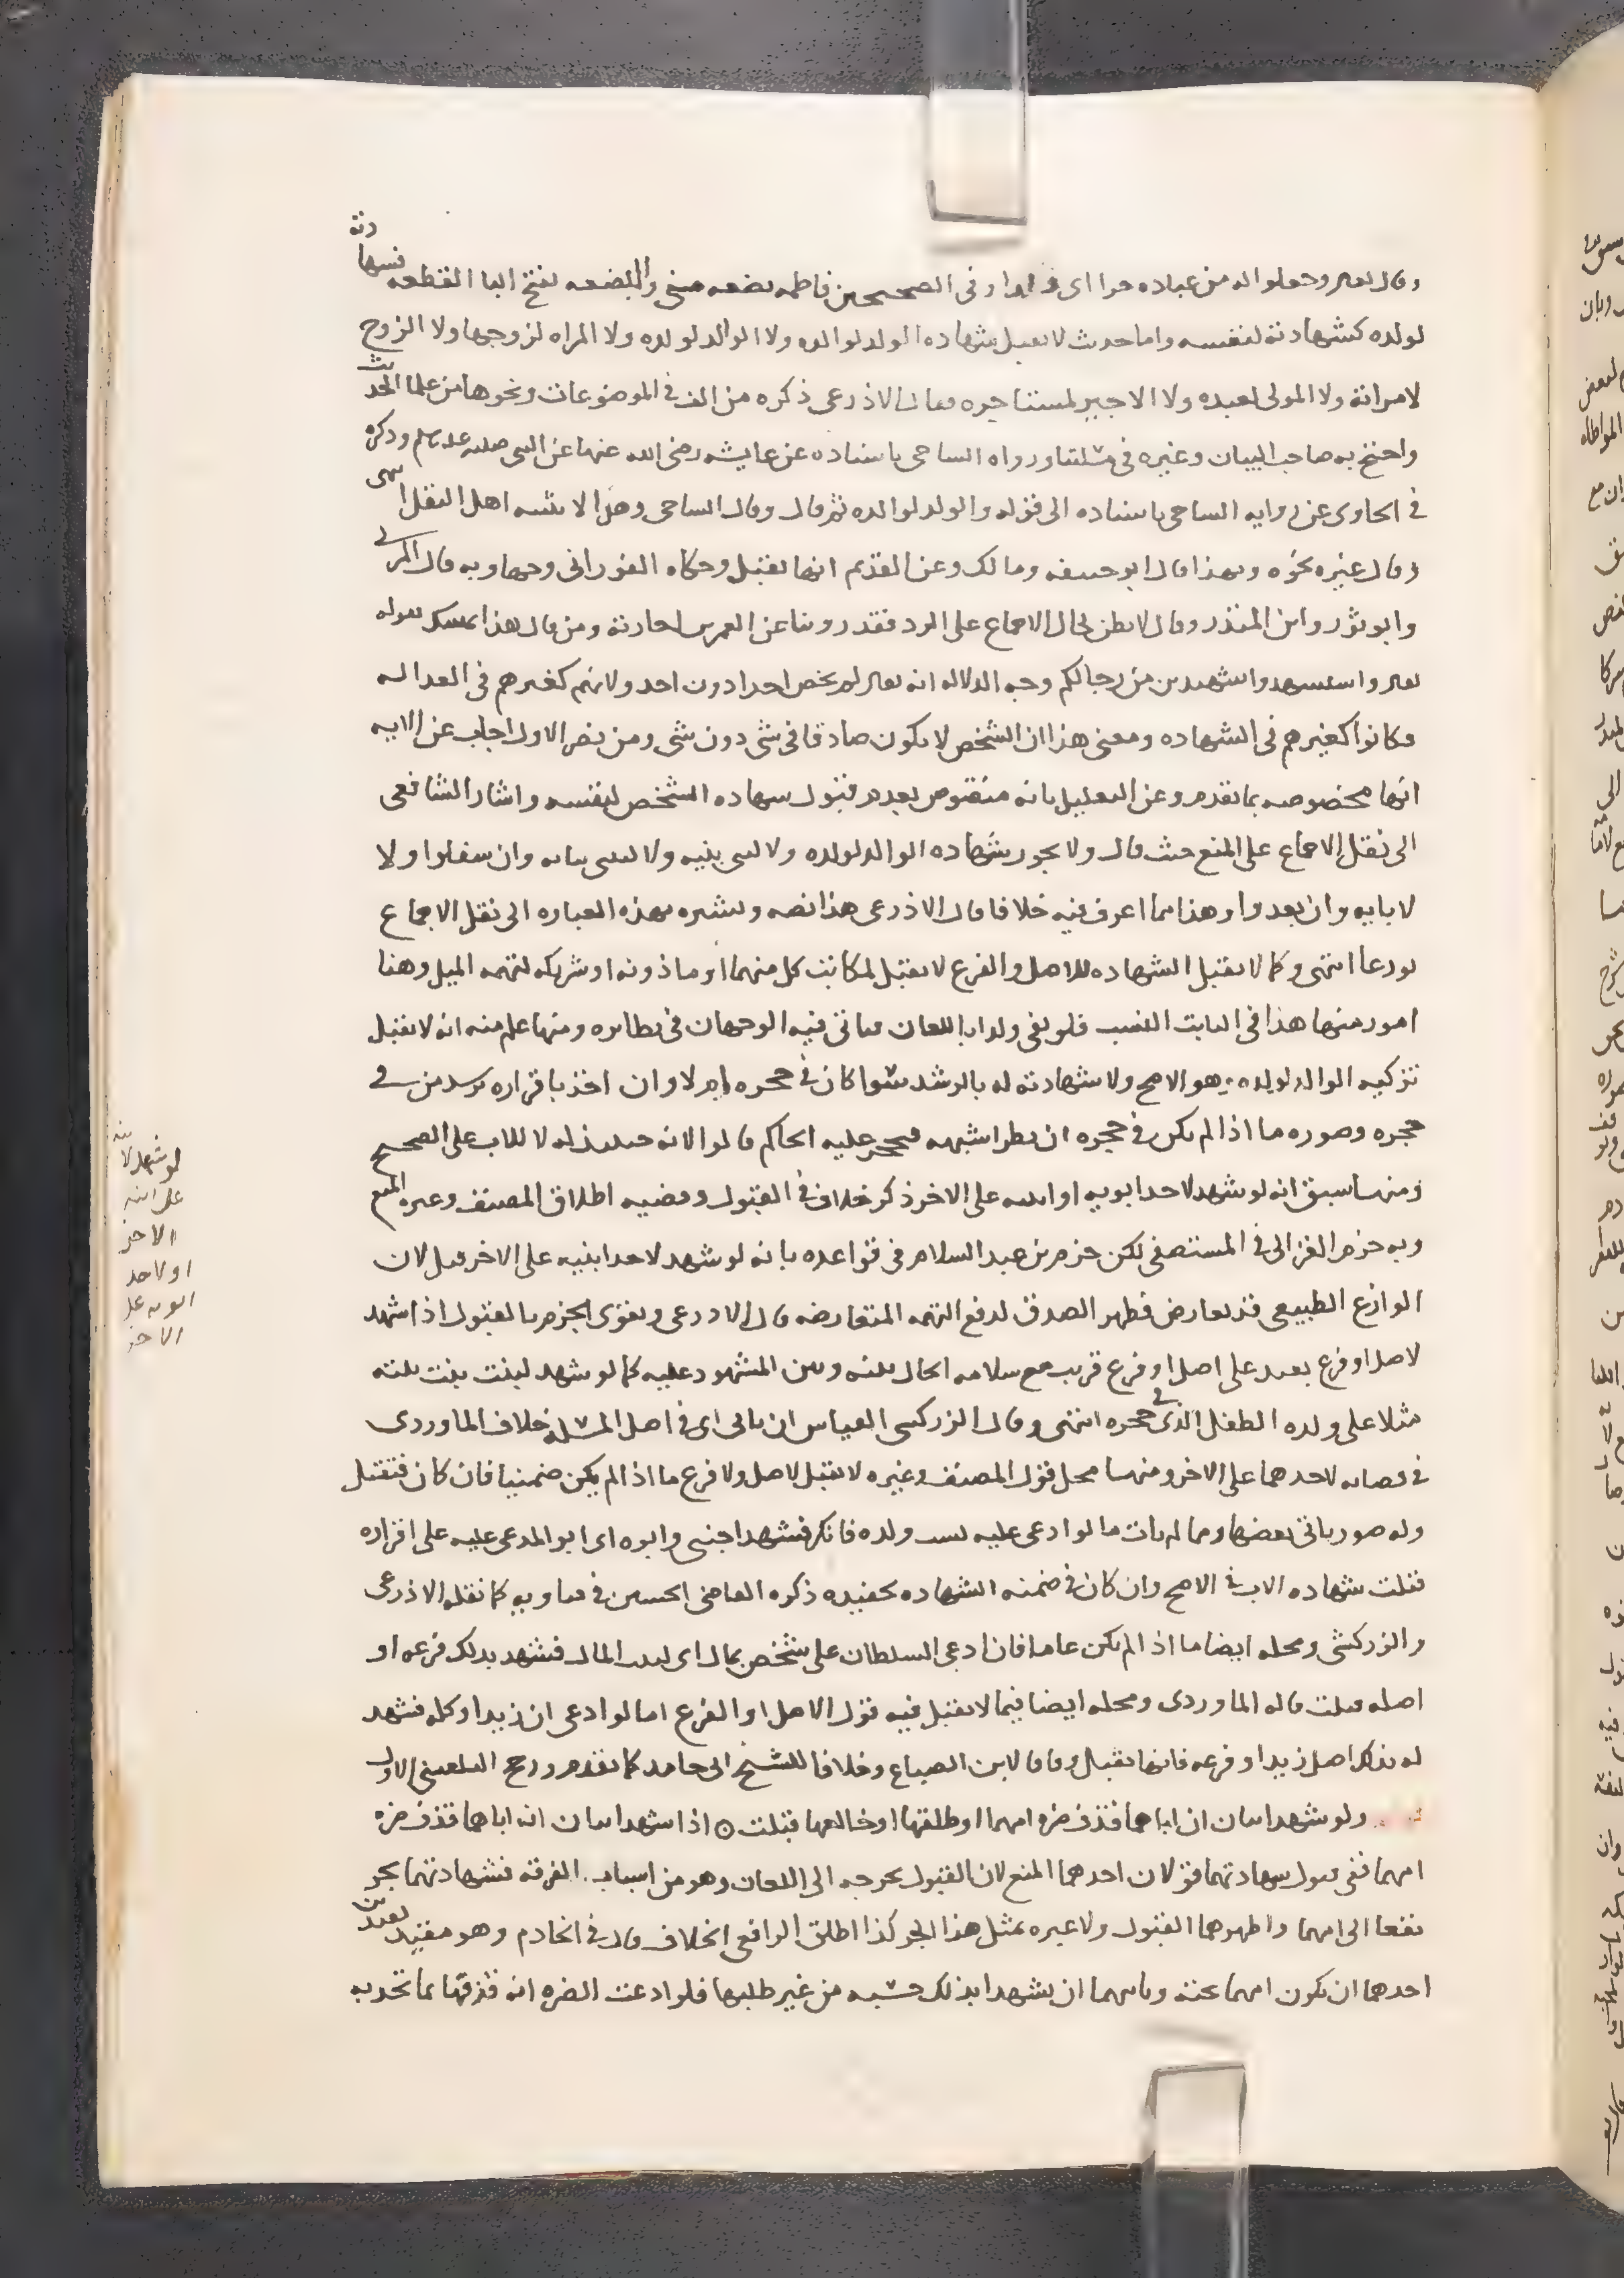 وقال تعالى وجعلوا له من عباده جزءا اى ولدا وفى الصحيحين فاطمه بضعه منى والبضعه بفتح البا القطعه فشهادته
لولده كشهادته لنفسه واما حديث لا تقبل شهاده الولد لوالده ولا الوالد لولده ولا المراه لزوجها ولا الزوج
لامراته ولا المولى لعبده ولا الاجير لمستاجره فقال الاذرعى ذكره من الف فى الموضوعات ونحوها من علما الحديث
واحتج به صاحب البيان وغيره فى مسئلتنا ورواه الساجى باسناده عن عايشه رضى الله عنها عن النبى صلى الله عليه وسلم وذكره
فى الحاوى عن روايه الساجى باسناده الى قوله والولد لوالده ثم قال وقال الساجى وهذا لا يثبته اهل النقل انتهى
وقال غيره نحوه وبهذا قال ابو حنيفه ومالك وعن القديم انها تقبل وحكاه الفورانى وجها وبه قال المزنى
وابو ثور وابن المنذر وقال لا يظن بحال الاجماع على الرد فقد روينا عن العمرين اجازته ومن قال بهذا تمسك بقوله
تعالى واستشهدوا شهيدين من رجالكم وجه الدلاله انه تعالى لم يخص احدا دون احد ولانهم كغيرهم فى العداله
فكانوا كغيرهم فى الشهاده ومعنى هذا ان الشخص لا يكون صادقا فى شى دون شى ومن نصر الاول اجاب عن الايه
انها مخصوصه بما تقدم وعن التعليل بانه منقوص بعدم قبول شهاده الشخص لنفسه واشار الشافعى
الى نقل الاجماع على المنع حيث قال ولا يجوز شهاده الوالد لولده ولا لبنى بنيه ولا لبنى بناته وان سفلوا ولا
لابايه وان بعدوا وهذا مما اعرف فيه خلافا قال الاذرعى هذا نصه ويشير بهذه العباره الى نقل الاجماع
تورعا انتهى وكما لا تقبل الشهاده للاصل والفرع لا تقبل لمكاتب كل منهما او ماذونه او شريكه لتهمه الميل وهنا
امور منها هذا فى الثابت النسب فلو نفى ولدا باللعان فياتى فيه الوجهان فى نظايره ومنها علم منه انه لا تقبل
تزكيه الوالد لولده وهو الاصح ولا شهادته له بالرشد سوا كان فى حجره ام لا وان اخذ باقراره برشد من فى
حجره وصوره ما اذا لم يكن فى حجره ان يطرا سفهه فيحجر عليه الحاكم قالوا لانه حينيذ له لا للاب على الصحيح
ومنها سبق انه لو شهد لاحد ابويه او ابنيه على الاخر ذكر خلاف فى القبول وقضيه اطلاق المصنف وغيره المنع
وبه جزم الغزالى فى المستصفى لكن جزم بن عبد السلام فى قواعده بانه لو شهد لاحد ابنيه على الاخر قبل لان
الوازع الطبيعى قد تعارض فظهر الصدق لدفع التهمه المتعارضه قال الاذرعى ويقوى الجزم بالقبول اذا شهد
لاصل او فرع بعيد على اصل او فرع قريب مع سلامه الحال بينه وبين المشهود عليه كما لو شهد لبنت بنت بنته
مثلا على ولده الطفل الذى فى حجره انتهى وقال الزركشى القياس ان ياتى اى فى اصل المسئله خلاف الماوردى
فى قضايه لاحدهما على الاخر ومنها محل قول المصنف وغيره لا تقبل لاصل ولا فرع ما اذا لم يكن ضمنيا فان كان فتقبل
وله صور ياتى بعضها ومما لم يات ما لو ادعى عليه نسب ولده فانكر فشهد اجنبى وابوه اى ابو المدعى عليه على اقراره
قبلت شهاده الاب فى الاصح وان كان فى ضمنه الشهاده لحفيده ذكره القاضى الحسين فى فتاويه كما نقله الاذرعى
والزركشى ومحله ايضا ما اذا لم يكن عاما فان ادعى السلطان على شخص بمال اى لبيت المال فشهد بذلك فرعه او
اصله قبلت قاله الماوردى ومحله ايضا فيما لا يقبل فيه قول الاصل او الفرع اما لو ادعى ان زيدا وكله فشهد
له بذلك اصل زيد او فرعه فانها تقبل وفاقا لابن الصباغ وخلافا للشيخ ابى حامد كما تقدم ورجح البلقينى الاول
ولو شهد ابنان ان اباهما قذف ضره امهما او طلقها او خالعها قبلت ۞ اذا شهد ابنان ان اباهما قذف ضره
امهما ففى قبول شهادتهما قولان احدهما المنع لان القبول يحوجه الى اللعان وهو من اسباب الفرقه فشهادتهما تجر
نفعا الى امهما واظهرهما القبول ولا عبره بمثل هذا الجر كذا اطلق الرافعى الخلاف قال فى الخادم وهو مقيد بقيدين
احدهما ان يكون امهما تحته وثانيهما ان يشهدا بذلك حسبه من غير طلبها فلو ادعت الضره انه قذفها بما تحد به
لو شهد لابنه
على ابنه
الاخر
او لاحد
ابويه على
الاخر